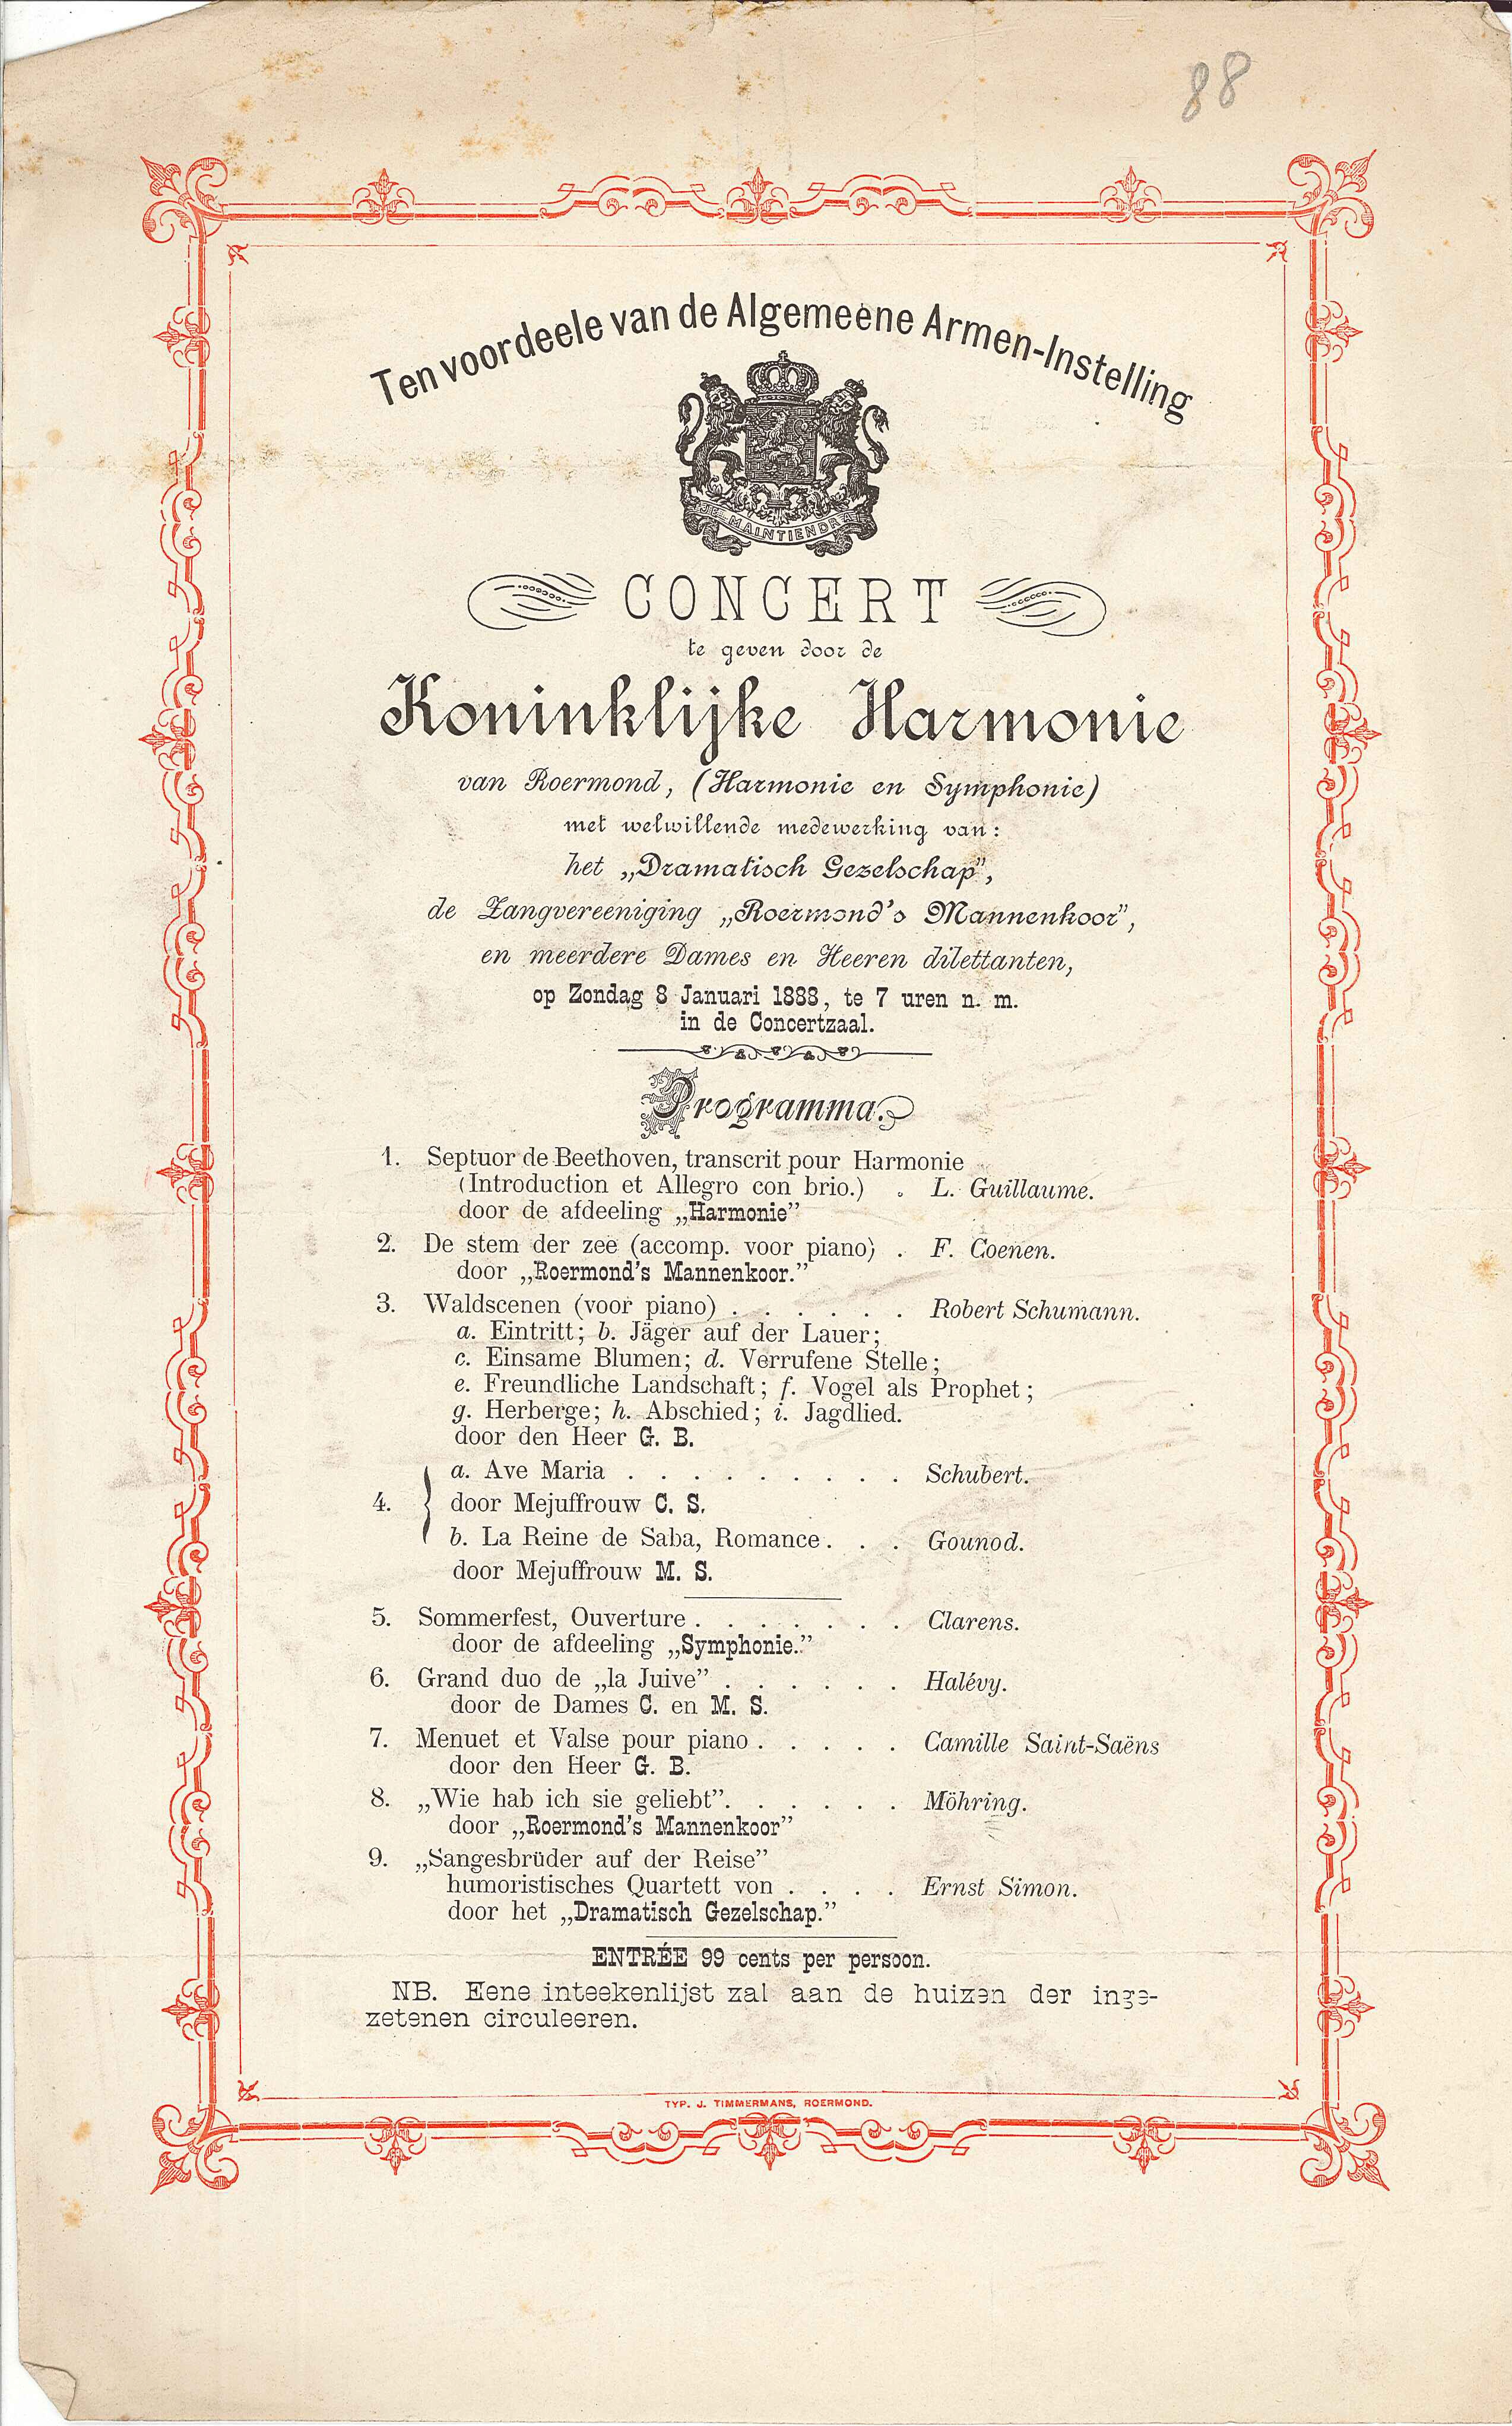 88
Ten voordeele van de Algemeene Armen-Instelling
JE MAINTIENDRAI
CONCERT
te geven door de
Koninklijke Harmonie
van Roermond, (Harmonie en Symphonie)
met welwillende medewerking van:
het „Dramatisch Gezelschap”,
de Zangvereeniging „Roermond's Mannenkoor”,
en meerdere Dames en Heeren dilettanten,
op Zondag 8 Januari 1888, te 7 uren n. m.
in de Concertzaal.
Programma.
1. Septuor de Beethoven, transcrit pour Harmonie
(Introduction et Allegro con brio.) . L. Guillaume.
door de afdeeling „Harmonie”
2. De stem der zee (accomp. voor piano) . F. Coenen.
door „Roermond's Mannenkoor.”
3. Waldscenen (voor piano) . . . . . . Robert Schumann.
a. Eintritt; b. Jäger auf der Lauer;
c. Einsame Blumen; d. Verrufene Stelle;
e. Freundliche Landschaft; f. Vogel als Prophet;
g. Herberge; h. Abschied; i. Jagdlied.
door den Heer G. B.
a. Ave Maria . . . . . . . . . Schubert.
4. door Mejuffrouw C. S.
b. La Reine de Saba, Romance . . . Gounod.
door Mejuffrouw M. S.
5. Sommerfest, Ouverture . . . . . . . Clarens.
door de afdeeling „Symphonie.”
6. Grand duo de „la Juive” . . . . . . Halévy.
door de Dames C. en M. S.
7. Menuet et Valse pour piano . . . . . Camille Saint-Saëns
door den Heer G. B.
8. „Wie hab ich sie geliebt”. . . . . . Möhring.
door „Roermond's Mannenkoor”
9. „Sangesbrüder auf der Reise”
humoristisches Quartett von . . . . Ernst Simon.
door het „Dramatisch Gezelschap.”
ENTRÉE 99 cents per persoon.
NB. Eene inteekenlijst zal aan de huizen der inge-
zetenen circuleeren.
TYP. J. TIMMERMANS, ROERMOND.